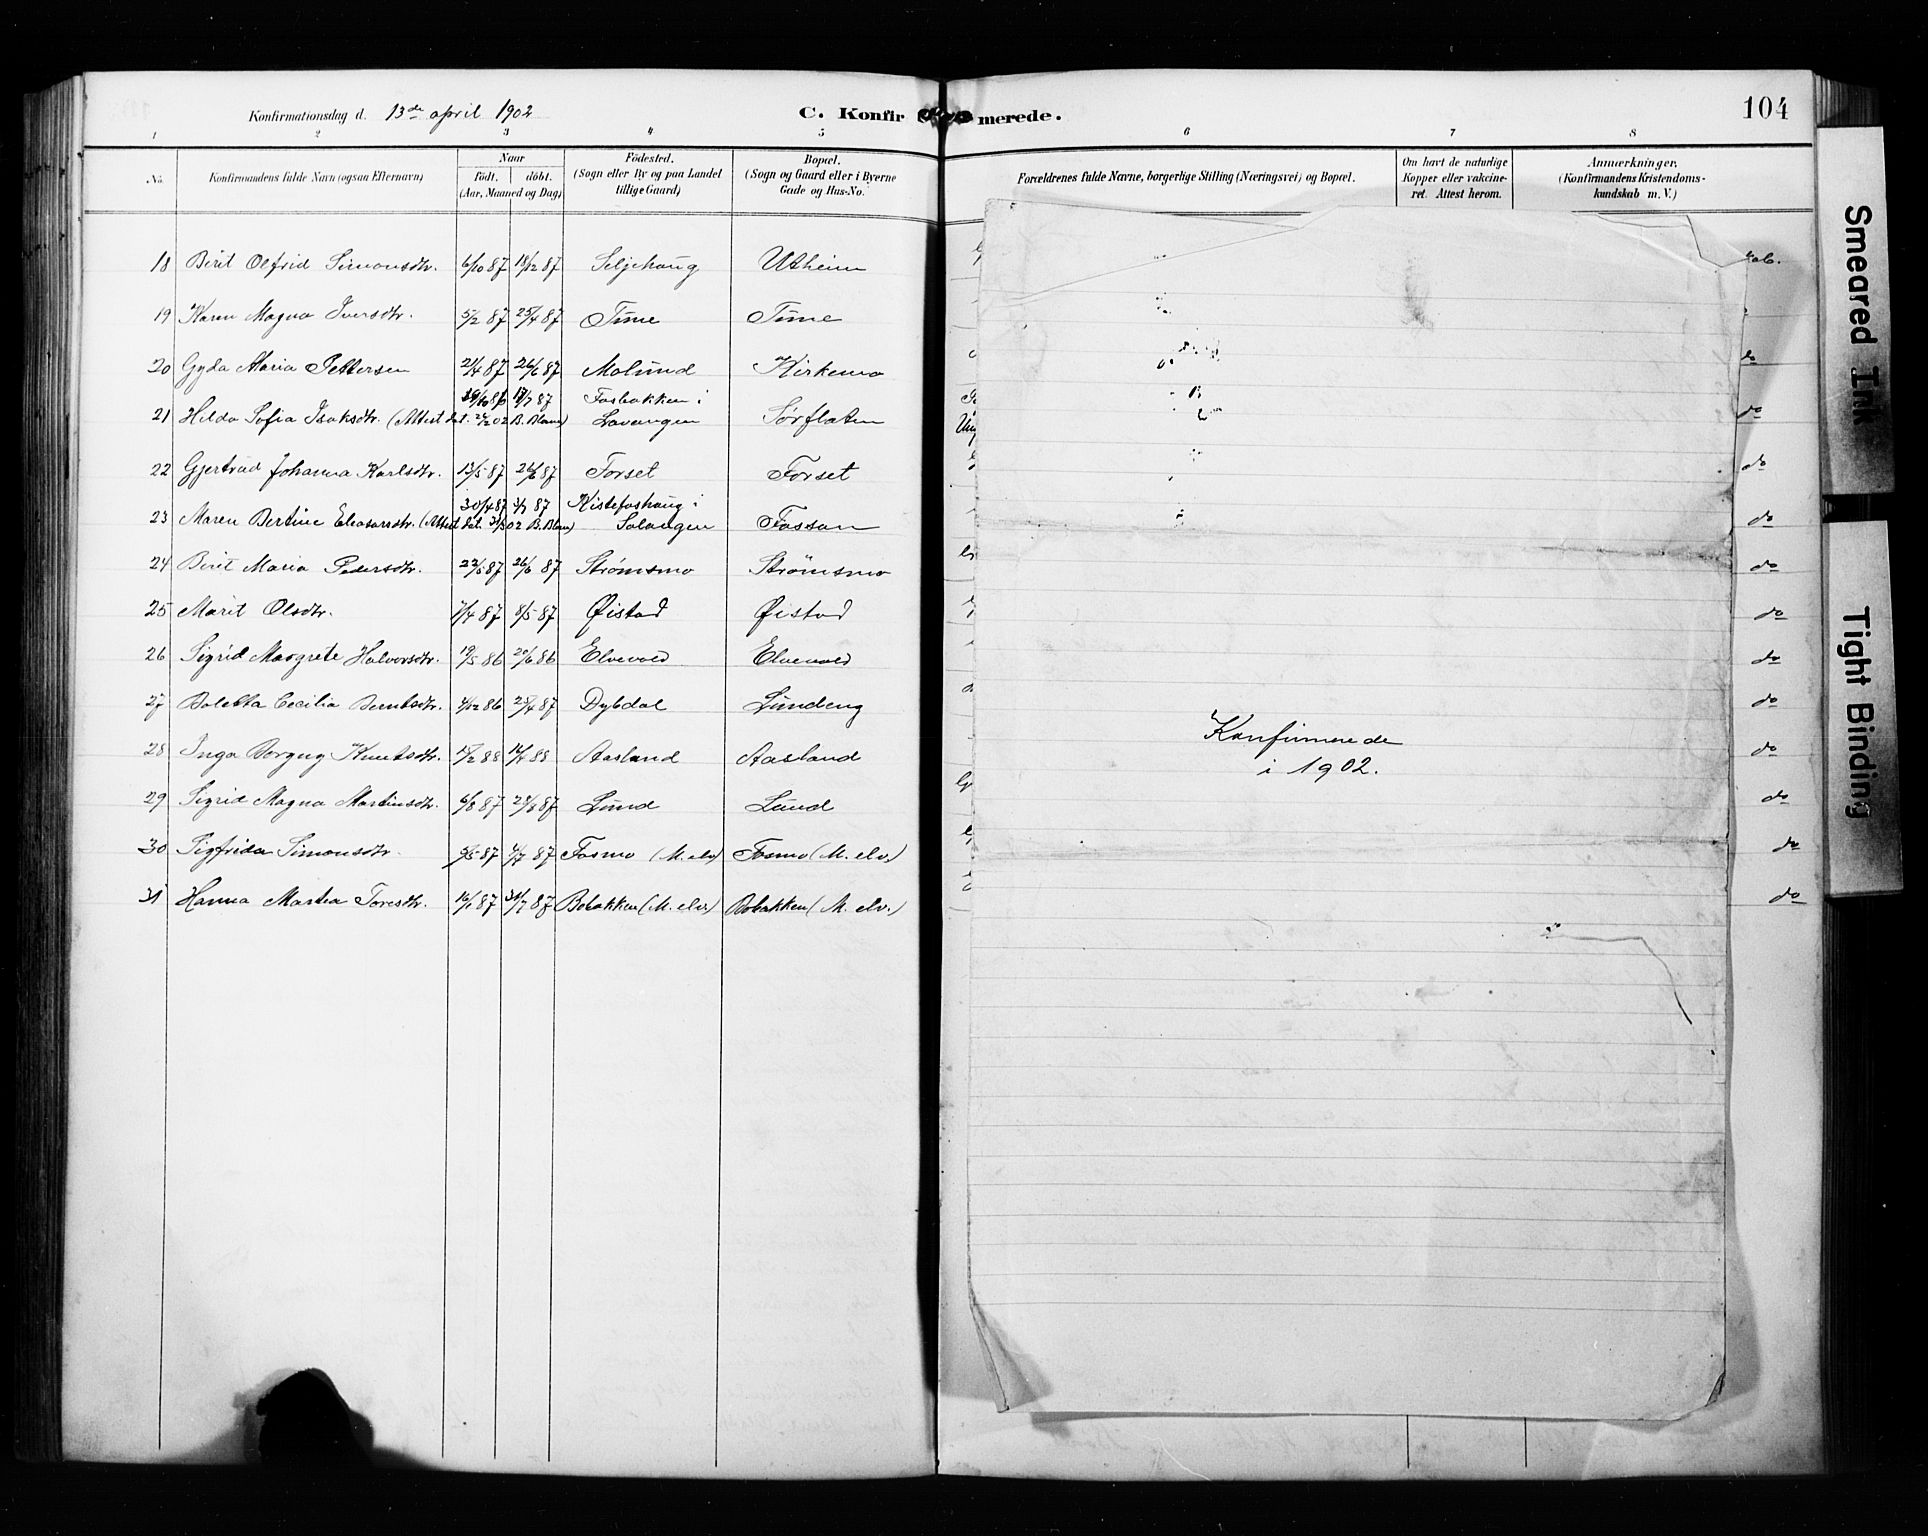 Konfirmationsdag d. 13de april 1902
C. Konfirmerede.
104
1 2 3 4 5 6 7 8
No.
Konfirmandens fulde Navn (ogsaa Efternavn)
Naar
födt. döbt.
(Aar, Maaned og Dag)
Födested.
(Sogn eller By og paa Landet
tillige Gaard)
Bopæl.
(Sogn og Gaard eller i Byerne
Gade og Hus-No.
Forældrenes fulde Navne, borgerlige Stilling (Næringsvei) og Bopæl.
Om havt de naturlige
Kopper eller vakcine-
ret. Attest herom.
Anmærkninger.
(Konfirmandens Kristendoms-
kundskab m. V.)
18 Berit Olfrid Simonsdtr. 6/10 87 18/12 87 Seljehaug Utheim
19 Karen Magna Iversdtr. 5/2 87 25/4 87 Time Time
20 Gyda Maria Pettersen 21/4 87 26/6 87 Molund Kirkemo do
21 Hilda Sofia Isaksdtr. (Attest dat. 24/2 02 B. Blom) 17/7 87 Fosbakken i Lavangen Sørflaten do
22 Gjertrud Johanna Karlsdtr. 13/5 87 26/6 87 Forset Forset do
23 Maren Bertine Eleasarsdtr. (Attest dat. 3/3 02 B. Blom) 30/4 87 3/7 87 Kistefoshaug i Salangen Fossan do
24 Berit Maria Pedersdtr. 22/5 87 26/6 87 Strømsmo Strömsmo do
25 Marit Olsdtr. 7/4 87 8/5 87 Øistad Øistad do
26 Sigrid Margrete Halvorsdtr. 19/5 86 20/6 86 Elvevold Elvevold do
27 Boletta Cecilia Berntsdtr. 4/12 86 25/4 87 Dybdal Lundeng do
28 Inga Borgny Knutsdtr. 15/2 88 Aasland Aasland do
29 Sigrid Magna Martinsdtr. 6/8 87 Lund Lund do
30 Sigfrida Simonsdtr. 5/5 87 4/7 87 Fosmo (M. elv) Fosmo (M. elv.) do
31 Hanna Martea Toresdtr. 16/1 87 31/7 87 Bobakken (M. elv.) Bobakken (M. elv.) do
Konfirmerede
i 1902.
Smeared Ink
Tight Binding